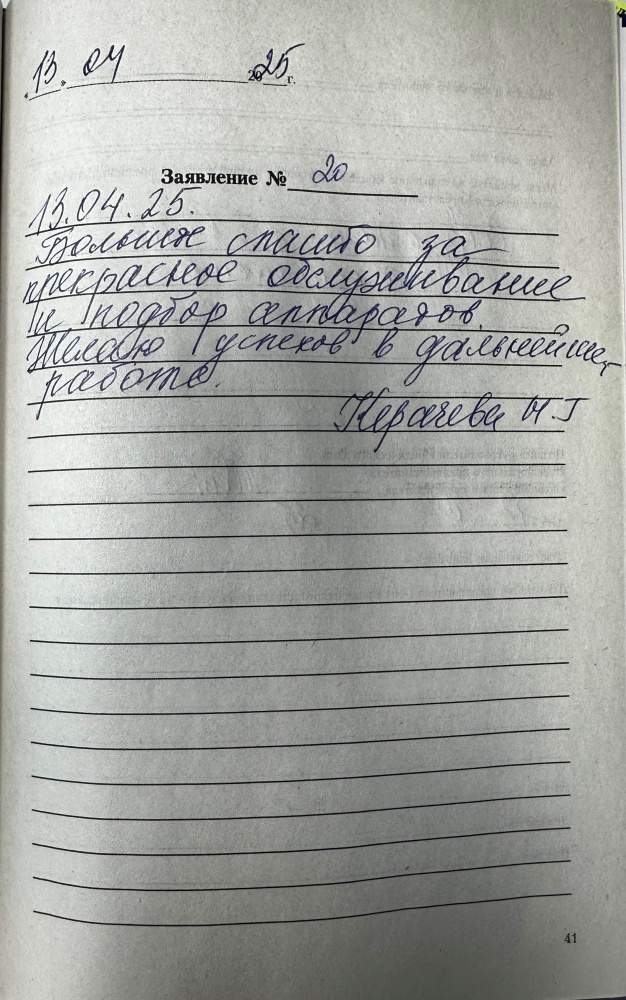 "13" 04 2025 г.
Заявление № 20
13.04.25.
Большое спасибо за
прекрасное обслуживание
и подбор аппаратов.
Желаю успехов в дальнейшей
работе.
Керачева Н.Г
41